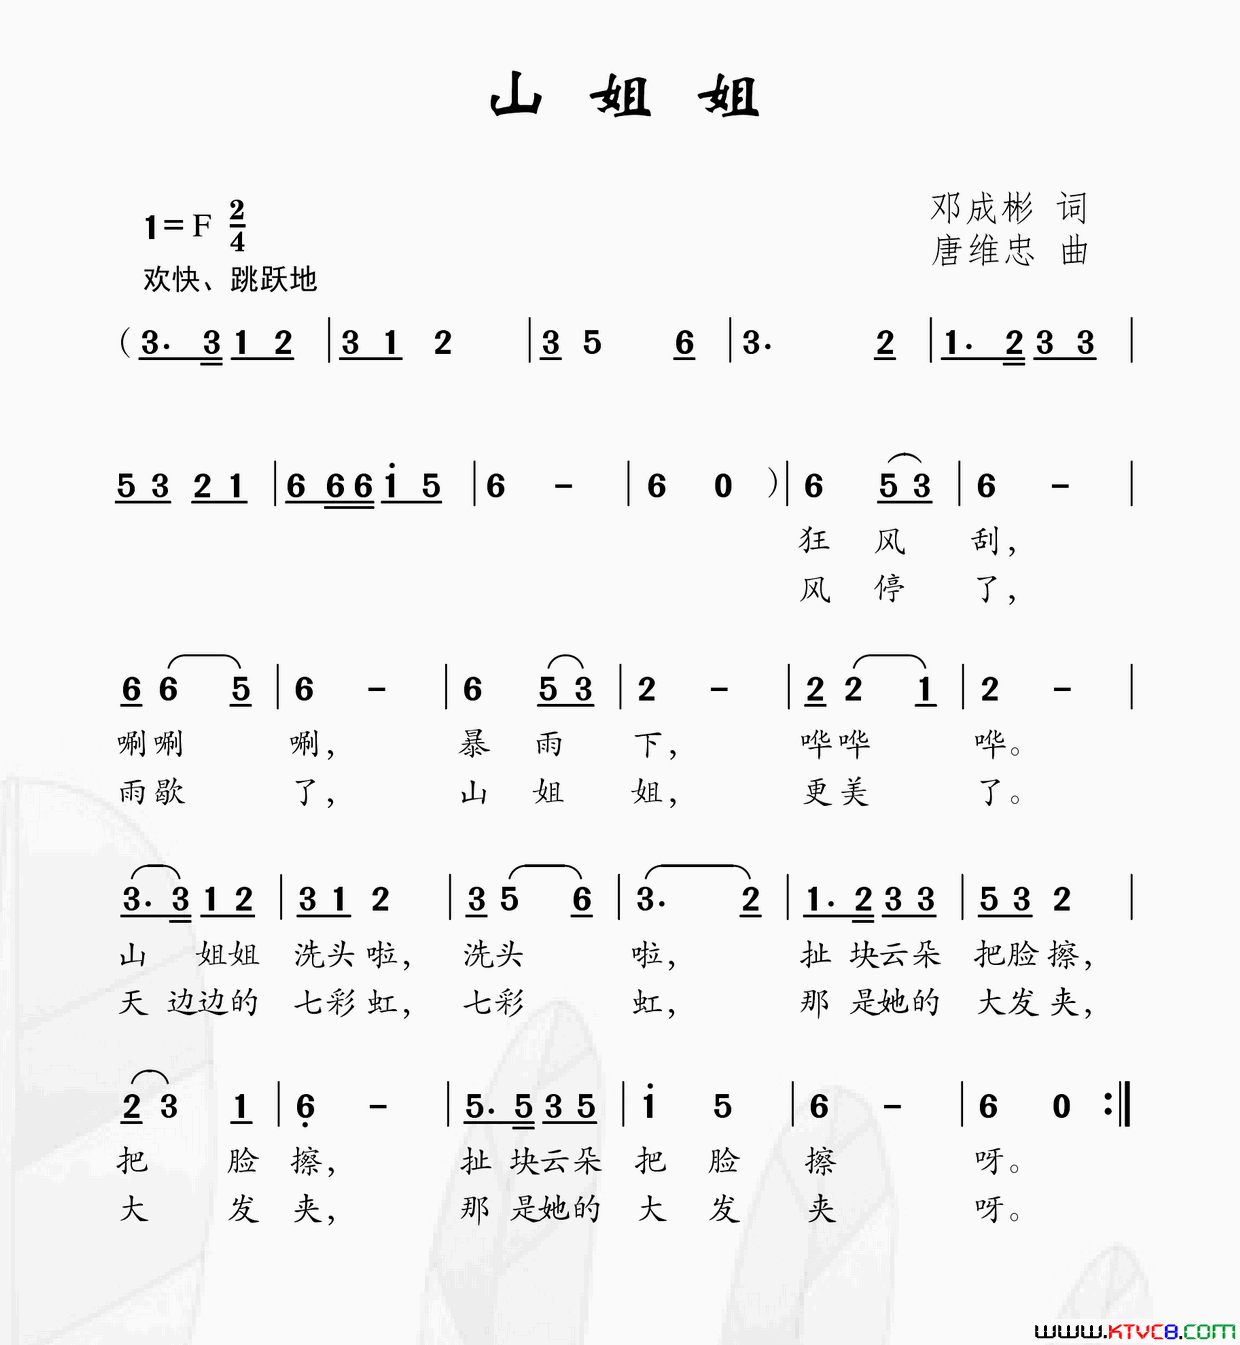 山 姐 姐
1=F 2/4
邓成彬 词
唐维忠 曲
欢快、跳跃地
（3. 3 1 2 | 3 1 2 | 3 5 6 | 3. 2 | 1. 2 3 3 |
5 3 2 1 | 6 6 6 i 5 | 6 － | 6 0 ）| 6 5 3 | 6 － |
狂 风 刮，
风 停 了，
6 6 5 | 6 － | 6 5 3 | 2 － | 2 2 1 | 2 － |
唰唰 唰， 暴 雨 下， 哗哗 哗。
雨歇 了， 山 姐 姐， 更美 了。
3. 3 1 2 | 3 1 2 | 3 5 6 | 3. 2 | 1. 2 3 3 | 5 3 2 |
山 姐姐 洗头 啦， 洗头 啦， 扯 块云朵 把脸 擦，
天 边边的 七彩 虹， 七彩 虹， 那 是她的 大发 夹，
2 3 1 | 6̣ － | 5. 5 3 5 | i 5 | 6 － | 6 0 :‖
把 脸 擦， 扯 块云朵 把 脸 擦 呀。
大 发 夹， 那 是她的 大 发 夹 呀。
www.KTVC8.COM